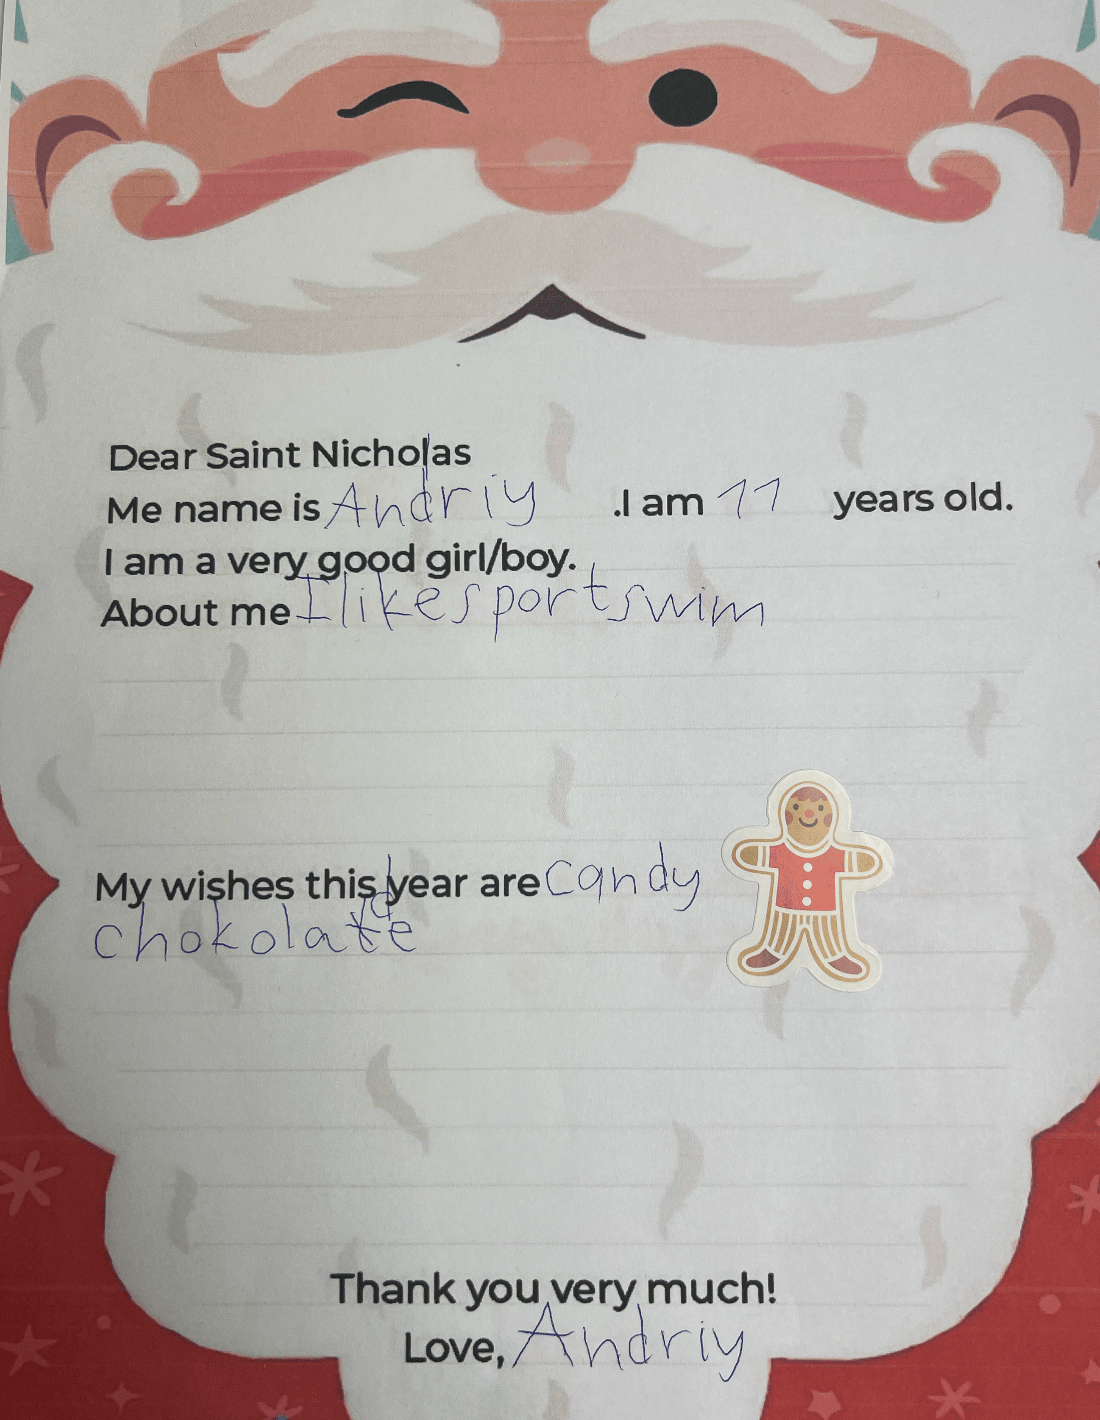 Dear Saint Nicholas
Me name is Andriy .I am 11 years old.
I am a very good girl/boy.
About me I like sport swim
My wishes this year are candy
chokolate
Thank you very much!
Love, Andriy